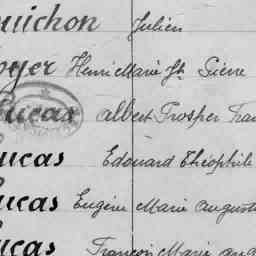 uichon Julien
oyer Henri Marie Jh Pierre
Lucas Albert Prosper Fran
ucas Edouard Théophile
ucas Eugène Marie Auguste
ucas François Marie